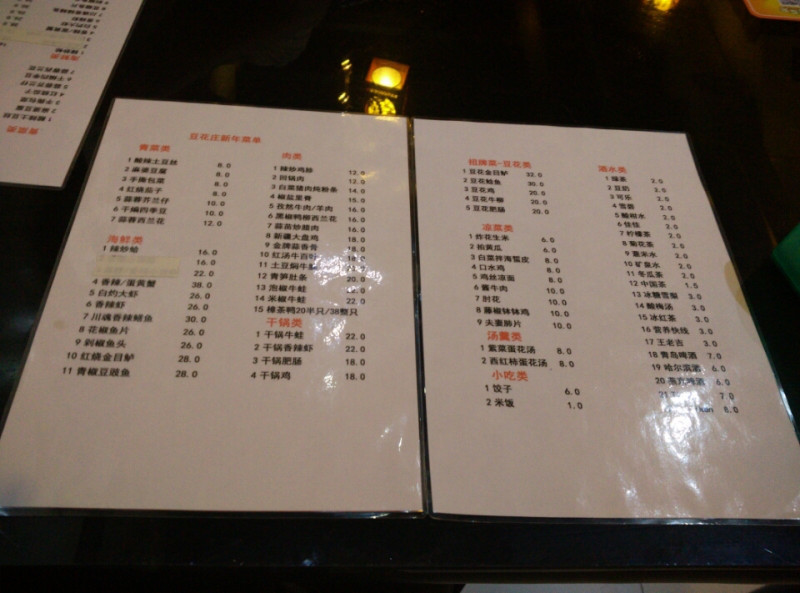 豆花庄新年菜单
青菜类
1 酸辣土豆丝 8.0
2 麻婆豆腐 8.0
3 手撕包菜 8.0
4 红烧茄子 8.0
5 蒜蓉芥兰仔 10.0
6 干煸四季豆 10.0
7 蒜蓉西兰花 12.0
海鲜类
1 辣炒蛤 16.0
16.0
22.0
4 香辣/蛋黄蟹 38.0
5 白灼大虾 26.0
6 香辣虾 26.0
7 川魂香辣鲳鱼 30.0
8 花椒鱼片 26.0
9 剁椒鱼头 28.0
10 红烧金目鲈 28.0
11 青椒豆豉鱼 28.0
肉类
1 辣炒鸡胗 12.0
2 回锅肉 12.0
3 白菜猪肉炖粉条 14.0
4 椒盐里脊 15.0
5 孜然牛肉/羊肉 16.0
6 黑椒鸭柳西兰花 16.0
7 蒜苗炒腊肉 16.0
8 新疆大盘鸡 18.0
9 金牌蒜香骨 18.0
10 红汤牛百叶 18.0
11 土豆焖牛腩 18.0
12 青笋肚条 20.0
13 泡椒牛蛙 22.0
14 米椒牛蛙 22.0
15 樟茶鸭20半只/38整只
干锅类
1 干锅牛蛙 22.0
2 干锅香辣虾 22.0
3 干锅肥肠 18.0
4 干锅鸡 18.0
招牌菜-豆花类
1 豆花金目鲈 32.0
2 豆花鲶鱼 30.0
3 豆花鸡 20.0
4 豆花牛柳 20.0
5 豆花肥肠 20.0
凉菜类
1 炸花生米 6.0
2 拍黄瓜 6.0
3 白菜拌海蜇皮 8.0
4 口水鸡 8.0
5 鸡丝凉面 8.0
6 酱牛肉 10.0
7 肘花 10.0
8 藤椒钵钵鸡 10.0
9 夫妻肺片 10.0
汤羹类
1 紫菜蛋花汤 8.0
2 西红柿蛋花汤 8.0
小吃类
1 饺子 6.0
2 米饭 1.0
酒水类
1 绿茶 2.0
2 豆奶 2.0
3 可乐 2.0
4 雪碧 2.0
5 酸柑水 2.0
6 佳佳 2.0
7 柠檬茶 2.0
8 菊花茶 2.0
9 薏米水 2.0
10 矿泉水 2.0
11 冬瓜茶 2.0
12 中国茶 1.5
13 冰糖雪梨 3.0
14 酸梅汤 3.0
15 冰红茶 3.0
16 营养快线 3.0
17 王老吉 3.0
18 青岛啤酒 7.0
19 哈尔滨酒 6.0
20 燕京啤酒 6.0
21 7.0
8.0